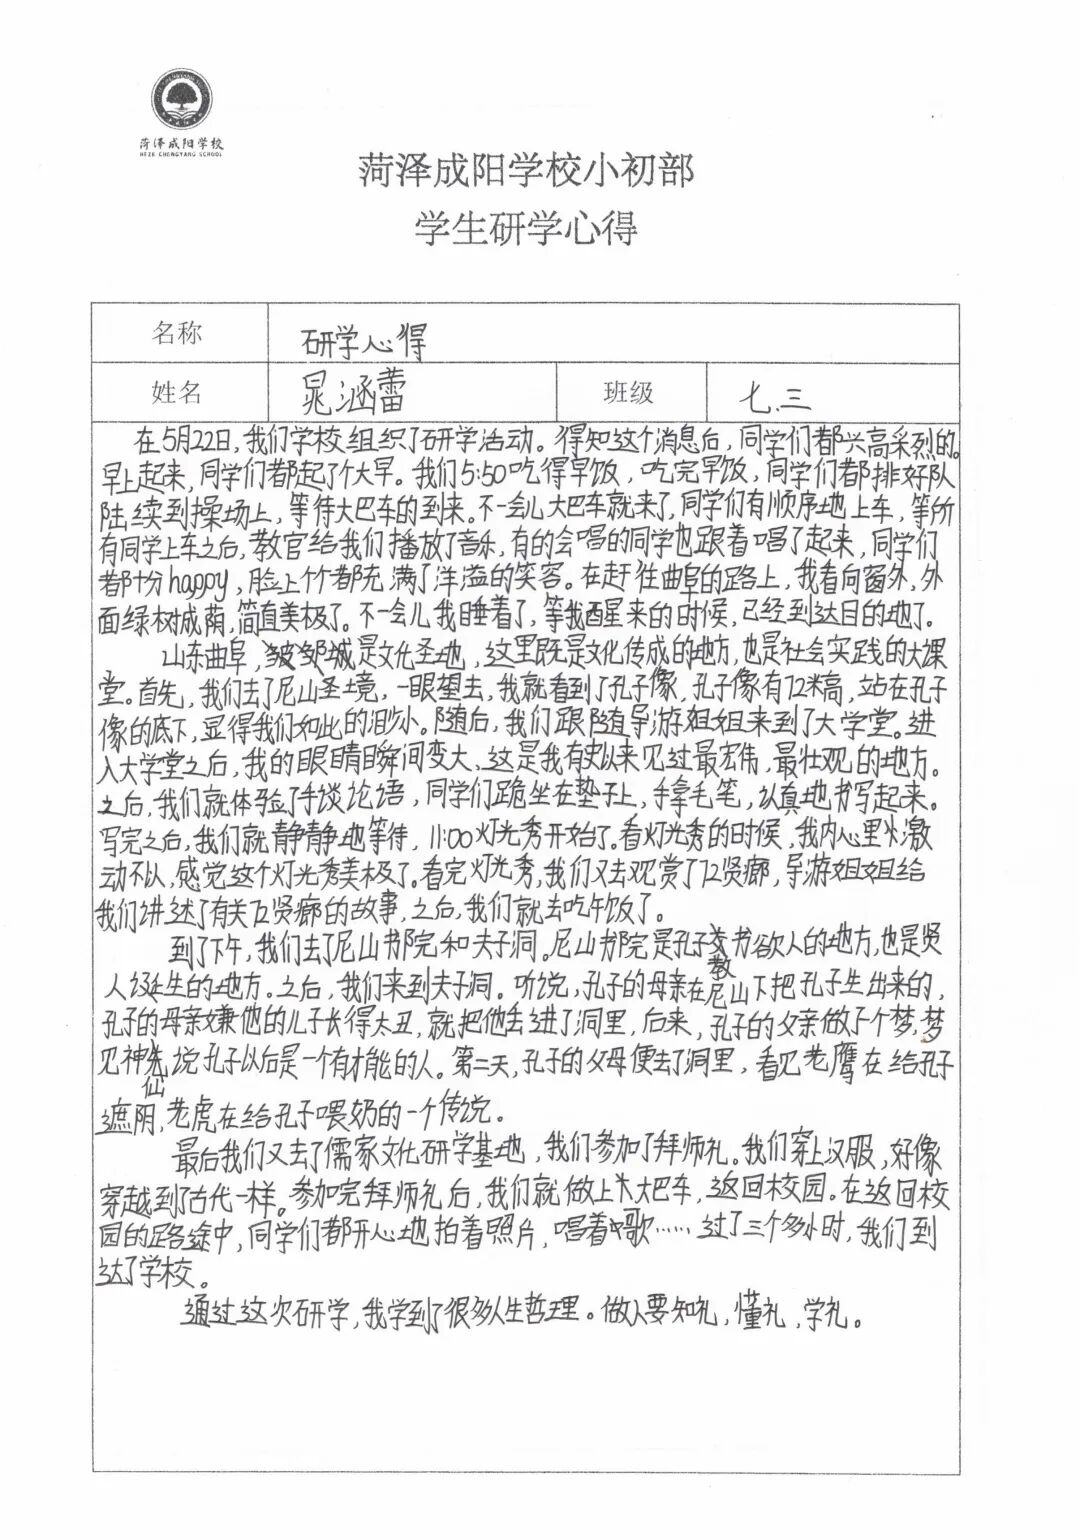 菏泽成阳学校
HEZE CHENGYANG SCHOOL
菏泽成阳学校小初部
学生研学心得
名称 研学心得
姓名 晁涵蕾 班级 七.三
在5月22日,我们学校组织了研学活动。得知这个消息后,同学们都兴高采烈的。
早上起来,同学们都起了个大早。我们5:50吃得早饭,吃完早饭,同学们都排好队
陆续到操场上,等待大巴车的到来。不一会儿大巴车就来了,同学们有顺序地上车,等所
有同学上车之后,教官给我们播放了音乐,有的会唱的同学也跟着唱了起来,同学们
都十分happy,脸上个个都充满了洋溢的笑容。在赶往曲阜的路上,我看向窗外,外
面绿树成荫,简直美极了。不一会儿我睡着了,等我醒来的时候,已经到达目的地了。
山东曲阜,邹城是文化圣地,这里既是文化传成的地方,也是社会实践的大课
堂。首先,我们去了尼山圣境,一眼望去,我就看到了孔子像,孔子像有72米高,站在孔子
像的底下,显得我们如此的渺小。随后,我们跟随导游姐姐来到了大学堂。进
入大学堂之后,我的眼睛瞬间变大,这是我有史以来见过最宏伟,最壮观的地方。
之后,我们就体验了手谈论语,同学们跪坐在垫子上,手拿毛笔,认真地书写起来。
写完之后,我们就静静地等待,11:00灯光秀开始了。看灯光秀的时候,我内心里激
动不以,感觉这个灯光秀美极了。看完灯光秀,我们又去观赏了72贤廊,导游姐姐给
我们讲述了有关72贤廊的故事,之后,我们就去吃午饭了。
到了下午,我们去了尼山书院和夫子洞。尼山书院是孔子教书欲人的地方,也是贤
人诞生的地方。之后,我们来到夫子洞。听说,孔子的母亲在尼山下把孔子生出来的,
孔子的母亲嫌他的儿子长得太丑,就把他丢进了洞里,后来,孔子的父亲做了个梦,梦
见神仙说孔子以后是一个有才能的人。第二天,孔子的父母便去了洞里,看见老鹰在给孔子
遮阴,老虎在给孔子喂奶的一个传说。
最后我们又去了儒家文化研学基地,我们参加了拜师礼。我们穿上汉服,好像
穿越到了古代一样。参加完拜师礼后,我们就做上大巴车,返回校园。在返回校
园的路途中,同学们都开心地拍着照片,唱着歌……过了三个多小时,我们到
达了学校。
通过这次研学,我学到了很多人生哲理。做人要知礼,懂礼,学礼。